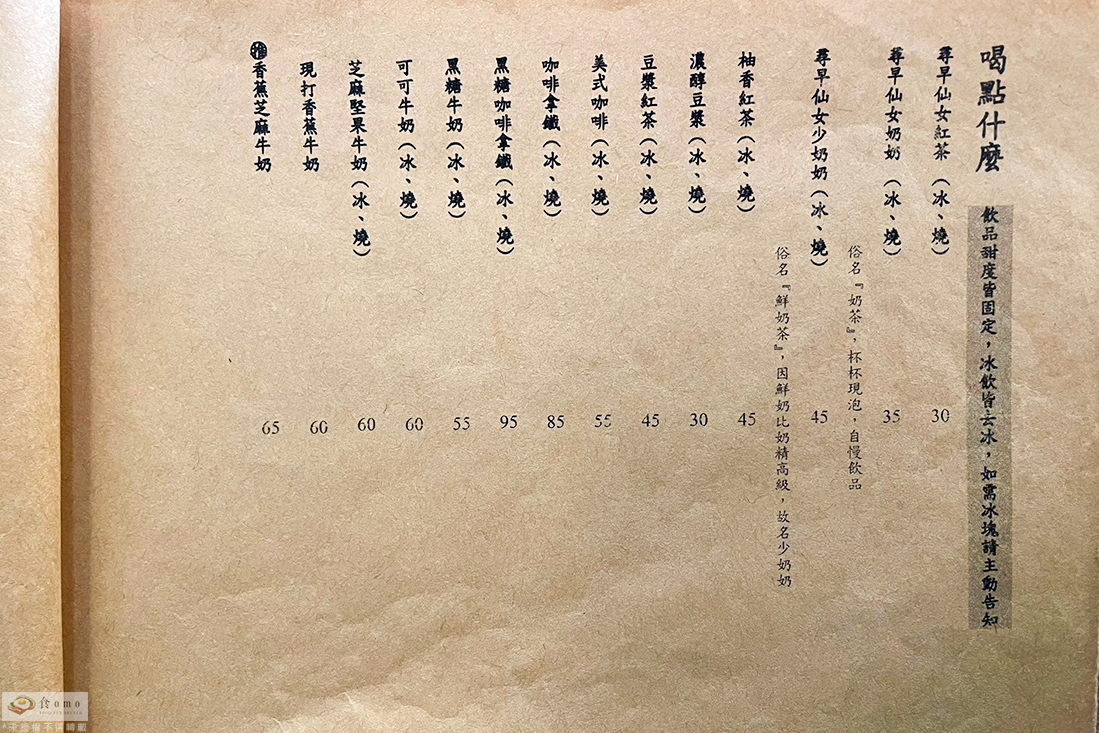 喝點什麼
飲品甜度皆固定，冰飲皆去冰，如需冰塊請主動告知
尋早仙女紅茶（冰、燒） 30
尋早仙女奶奶（冰、燒） 35
俗名『奶茶』，杯杯現泡，自慢飲品
尋早仙女少奶奶（冰、燒） 45
俗名『鮮奶茶』，因鮮奶比奶精高級，故名少奶奶
柚香紅茶（冰、燒） 45
濃醇豆漿（冰、燒） 30
豆漿紅茶（冰、燒） 45
美式咖啡（冰、燒） 55
咖啡拿鐵（冰、燒） 85
黑糖咖啡拿鐵（冰、燒） 95
黑糖牛奶（冰、燒） 55
可可牛奶（冰、燒） 60
芝麻堅果牛奶（冰、燒） 60
現打香蕉牛奶 60
推香蕉芝麻牛奶 65
食omo